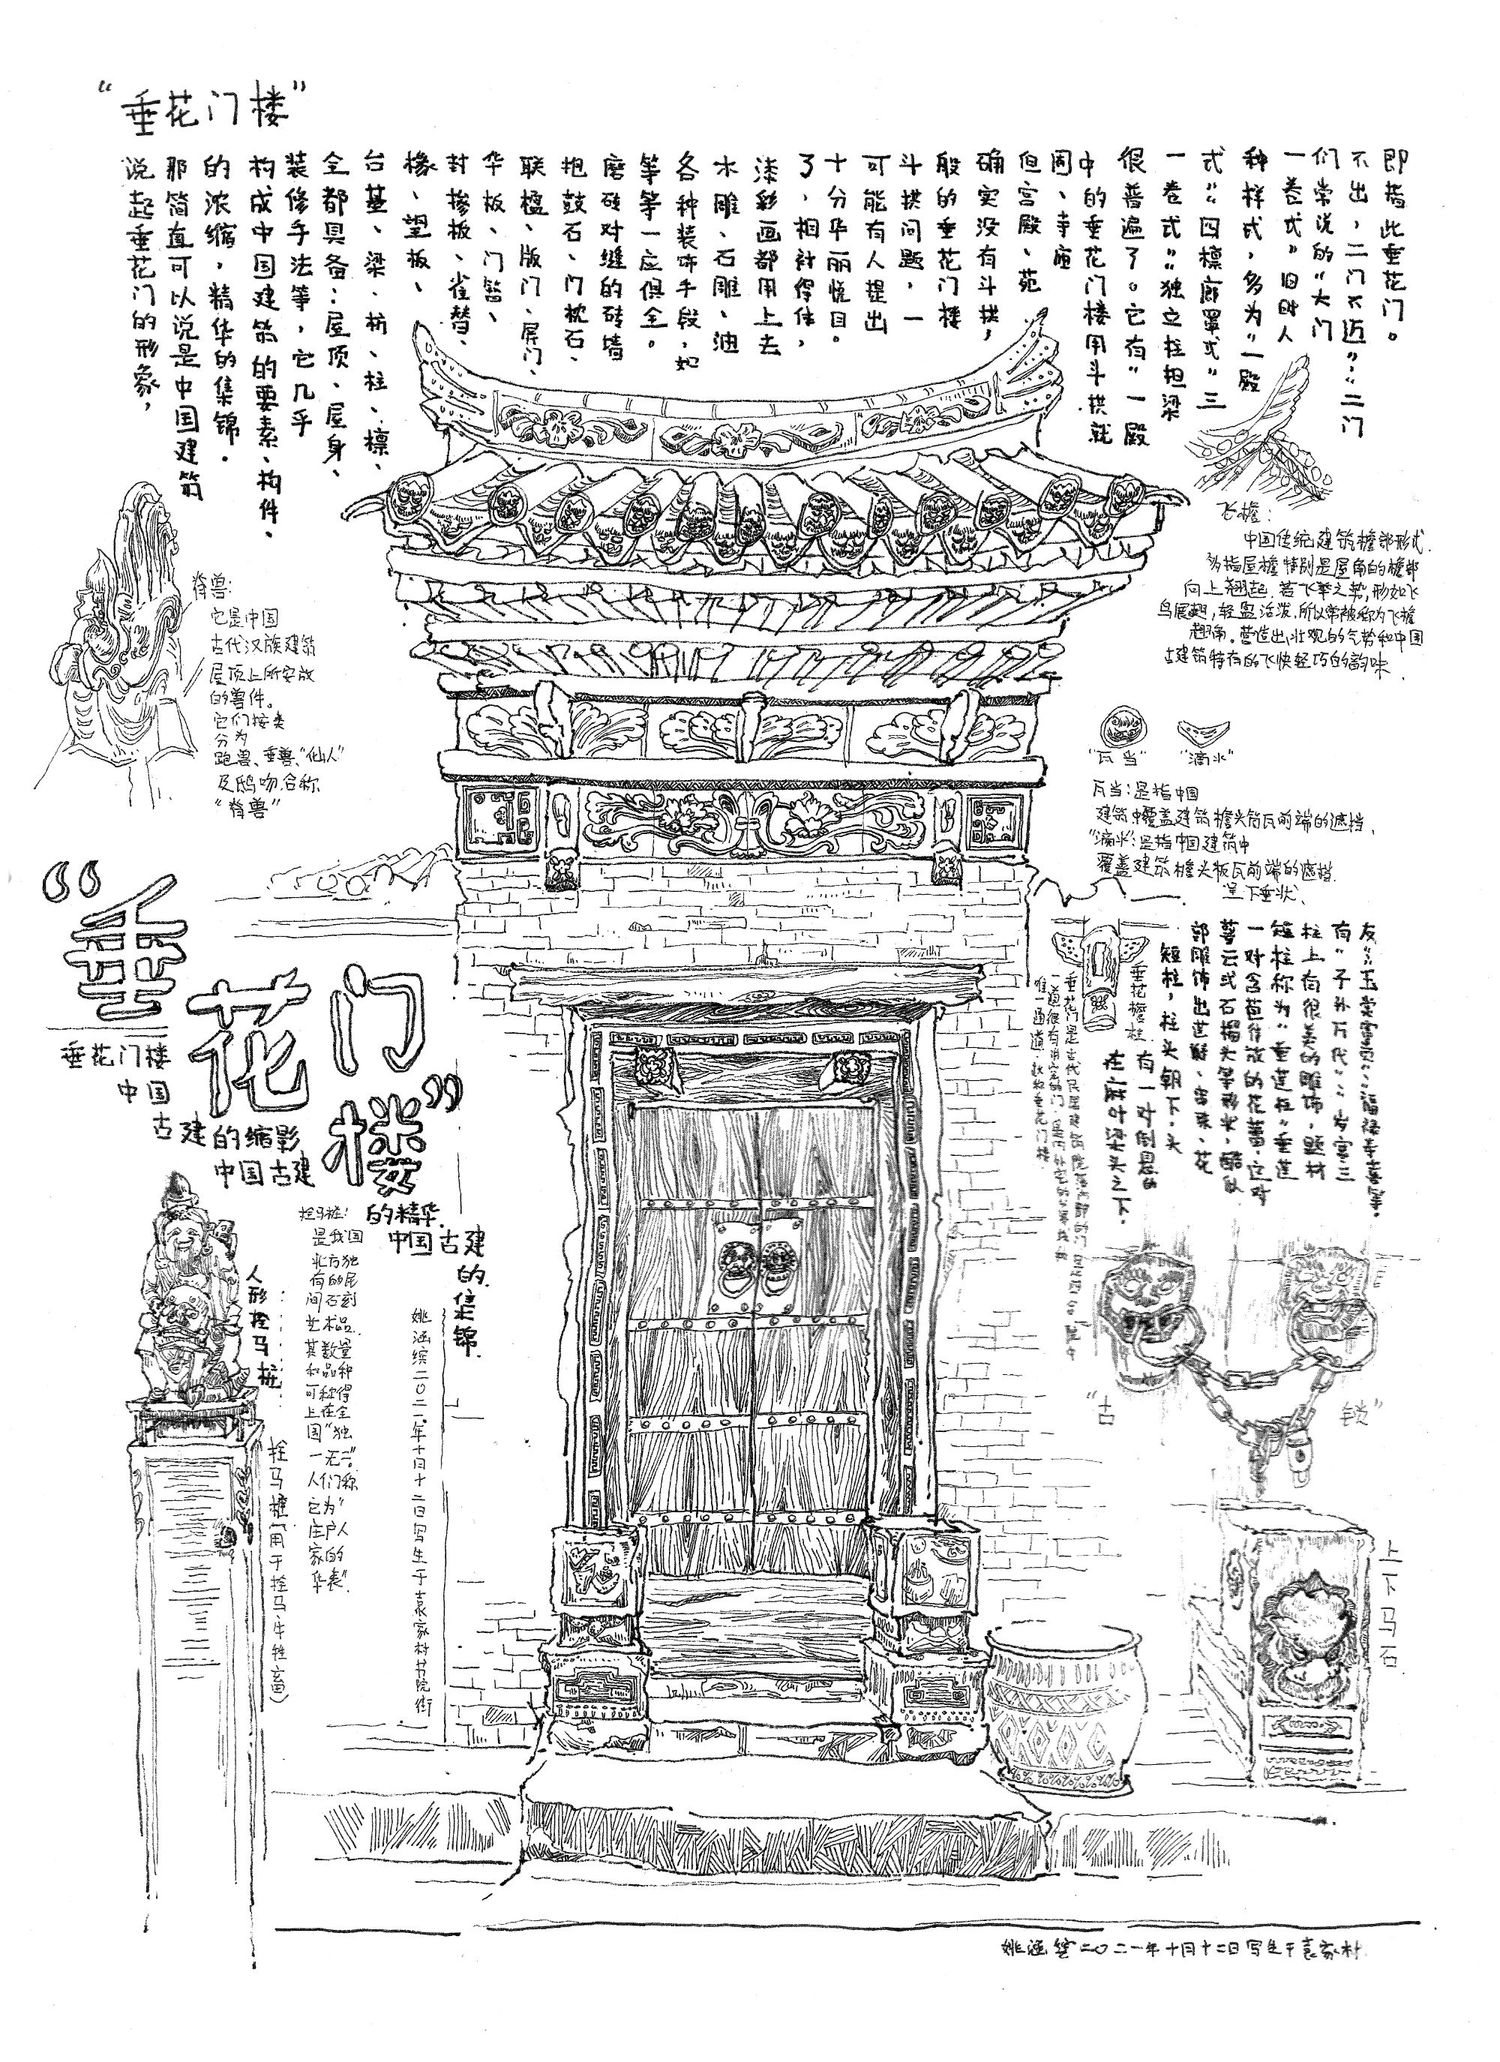 “垂花门楼”
说起垂花门的形象，
那简直可以说是中国建筑
的浓缩，精华的集锦。
构成中国建筑的要素、构件、
装修手法等，它几乎
全都具备：屋顶、屋身、
台基、梁、枋、柱、檩、
椽、望板、
封掺板、雀替、
华板、门簪、
联楹、版门、屏门、
抱鼓石、门枕石、
磨砖对缝的砖墙
等等一应俱全。
各种装饰手段，如
木雕、石雕、油
漆彩画都用上去
了，相衬得体，
十分华丽悦目。
可能有人提出
斗拱问题，一
般的垂花门楼
确实没有斗拱，
但宫殿、苑
囿、寺庙
中的垂花门楼用斗拱就
很普遍了。它有“一殿
一卷式”“独立柱担梁
式”“四檩廊罩式”三
种样式，多为“一殿
一卷式”旧时人
们常说的“大门
不出，二门不迈”：“二门
即指此垂花门。
脊兽：
它是中国
古代汉族建筑
屋顶上所安放
的兽件。
它们按类
分为
跑兽、垂兽、“仙人”
及鸱吻，合称
“脊兽”
飞檐：
中国传统建筑檐部形式，
多指屋檐特别是屋角的檐部
向上翘起，若飞举之势，形如飞
鸟展翅，轻盈活泼，所以常被称为飞檐
翘角。营造出壮观的气势和中国
古建筑特有的飞快轻巧的韵味
“瓦当” “滴水”
瓦当：是指中国
建筑中覆盖建筑檐头筒瓦前端的遮挡、
“滴水”：是指中国建筑中
覆盖建筑檐头板瓦前端的遮挡
呈下垂状、
“垂花门楼”
垂花门楼
中国
古建的缩影
中国古建
的精华
中国古建
的集锦
垂花檐柱
有一对倒悬的
在麻叶梁头之下，
短柱，柱头朝下，头
部雕饰出莲瓣、串珠、花
萼云或石榴头等形状，酷似
一对含苞待放的花蕾，这对
短柱称为“垂莲柱”垂莲
柱上有很美的雕饰，题材
有“子孙万代”“岁寒三
友”“玉棠富贵”“福禄寿喜等。
人形拴马桩
拴马桩：
是我国
北方独
有的民
间石刻
艺术品，
其数量
和品种
可称得
上在全
国“独
一无二”
人们称
它为“
庄户人
家的
华表”
拴马桩（用于拴马牛牲畜）
姚涵缤二〇二一年十月十二日写生于袁家村书院街
“古 锁”
上下马石
姚涵缤二〇二一年十月十二日写生于袁家村